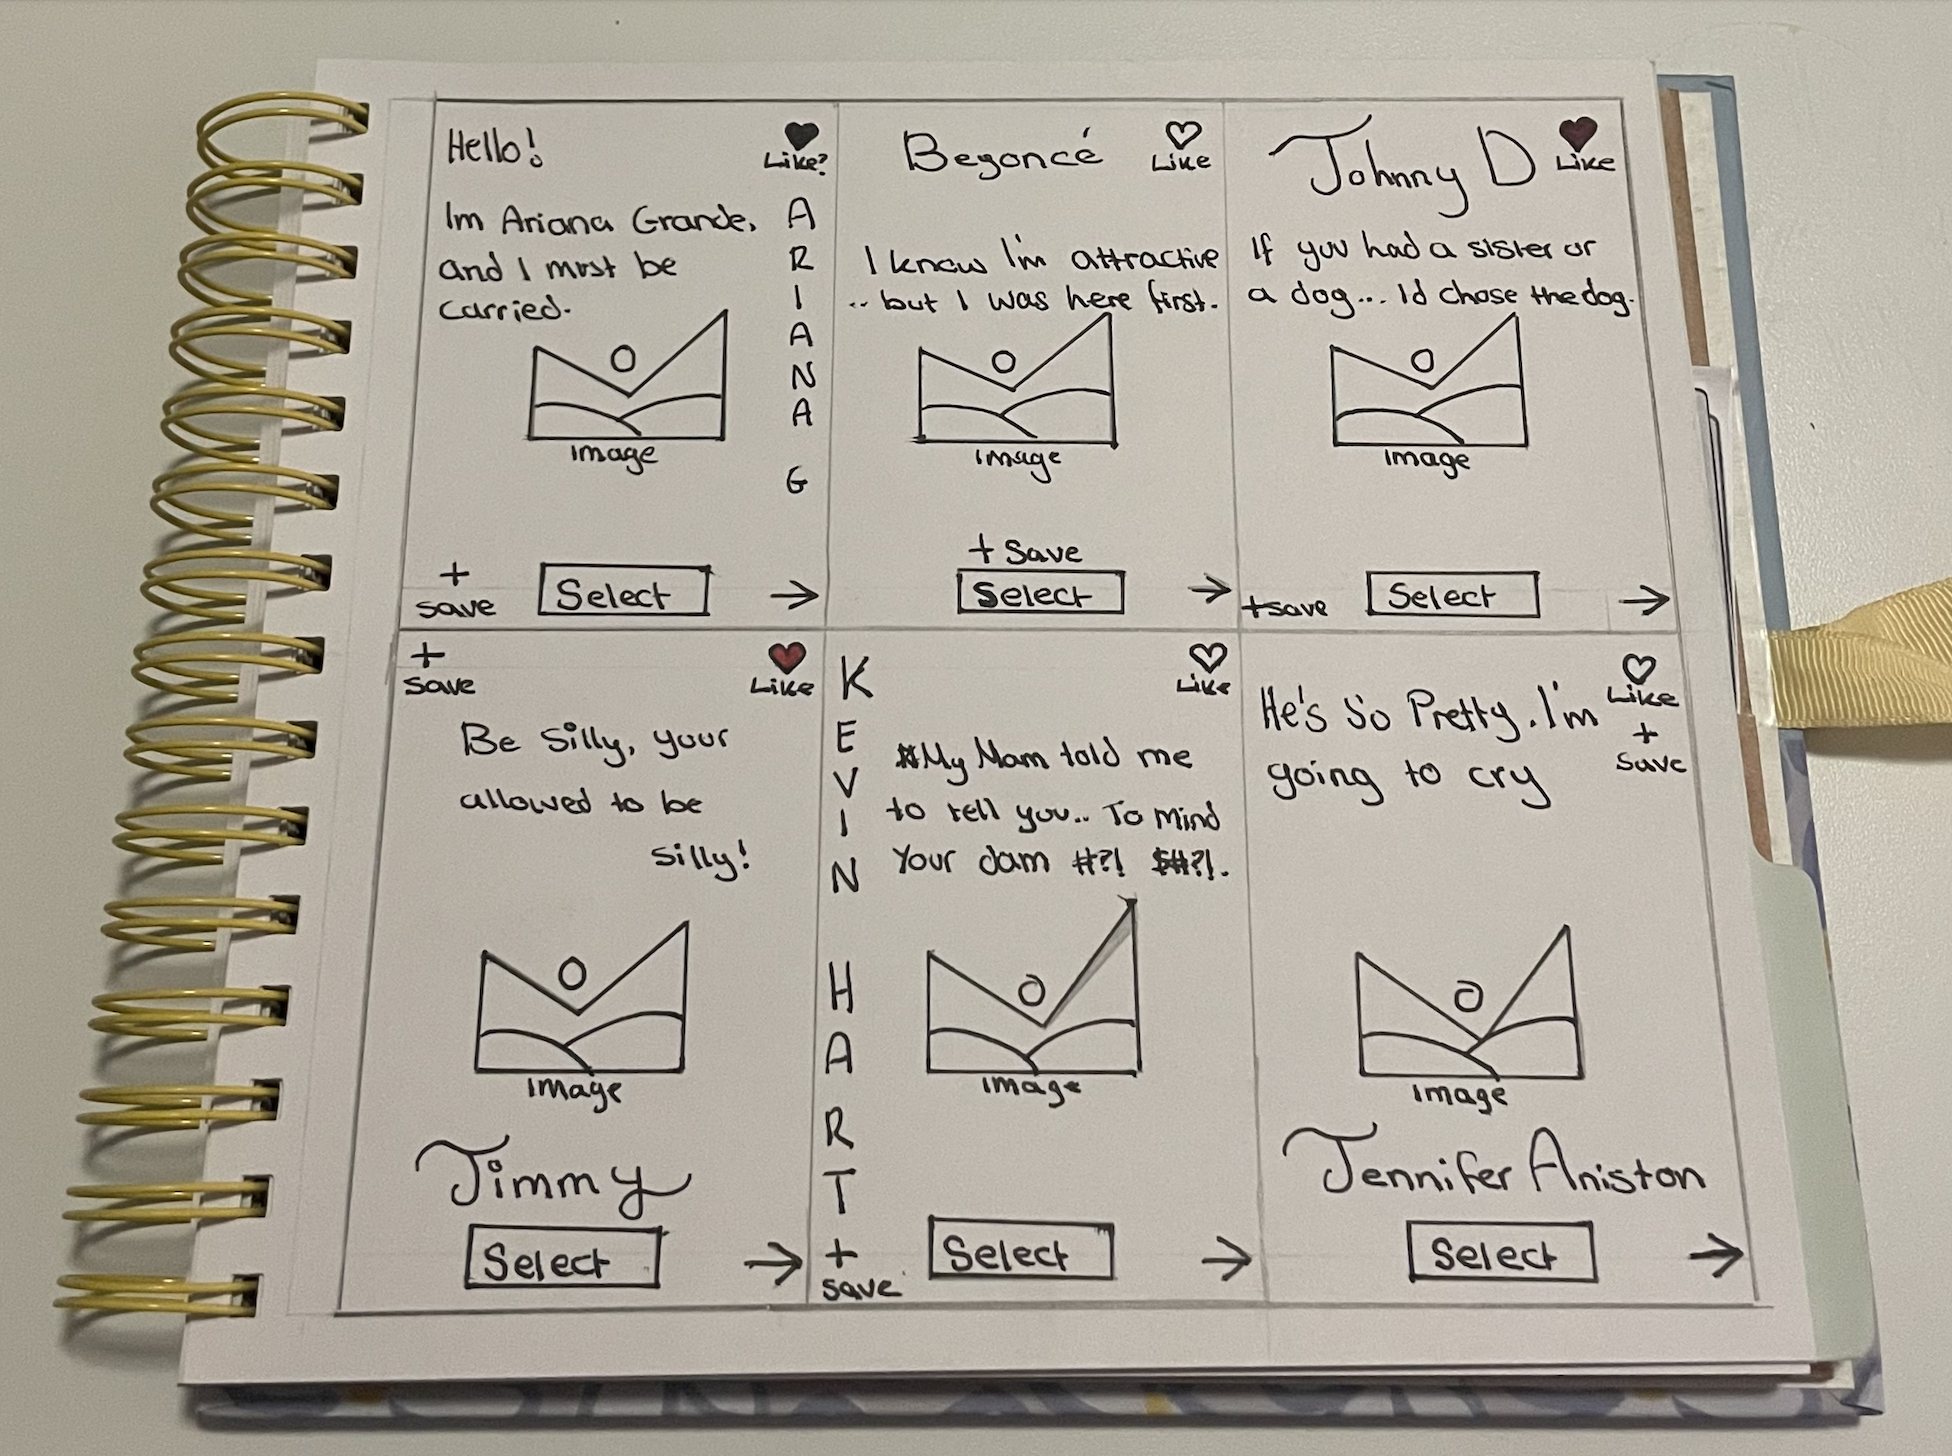 Hello!
Like?
Im Ariana Grande,
and I must be
carried.
A
R
I
A
N
A
G
Image
+
save
Select
Beyoncé
Like
I know I'm attractive
.. but I was here first.
Image
+ Save
Select
Johnny D
Like
If you had a sister or
a dog... Id chose the dog.
Image
+save
Select
+
Save
Like
Be Silly, your
allowed to be
silly!
Image
Jimmy
Select
K
E
V
I
N
H
A
R
T
+
save
Like
#My Mom told me
to tell you.. To mind
Your dam #?! $#?!.
Image
Select
He's So Pretty. I'm
going to cry
Like
+
Save
Image
Jennifer Aniston
Select